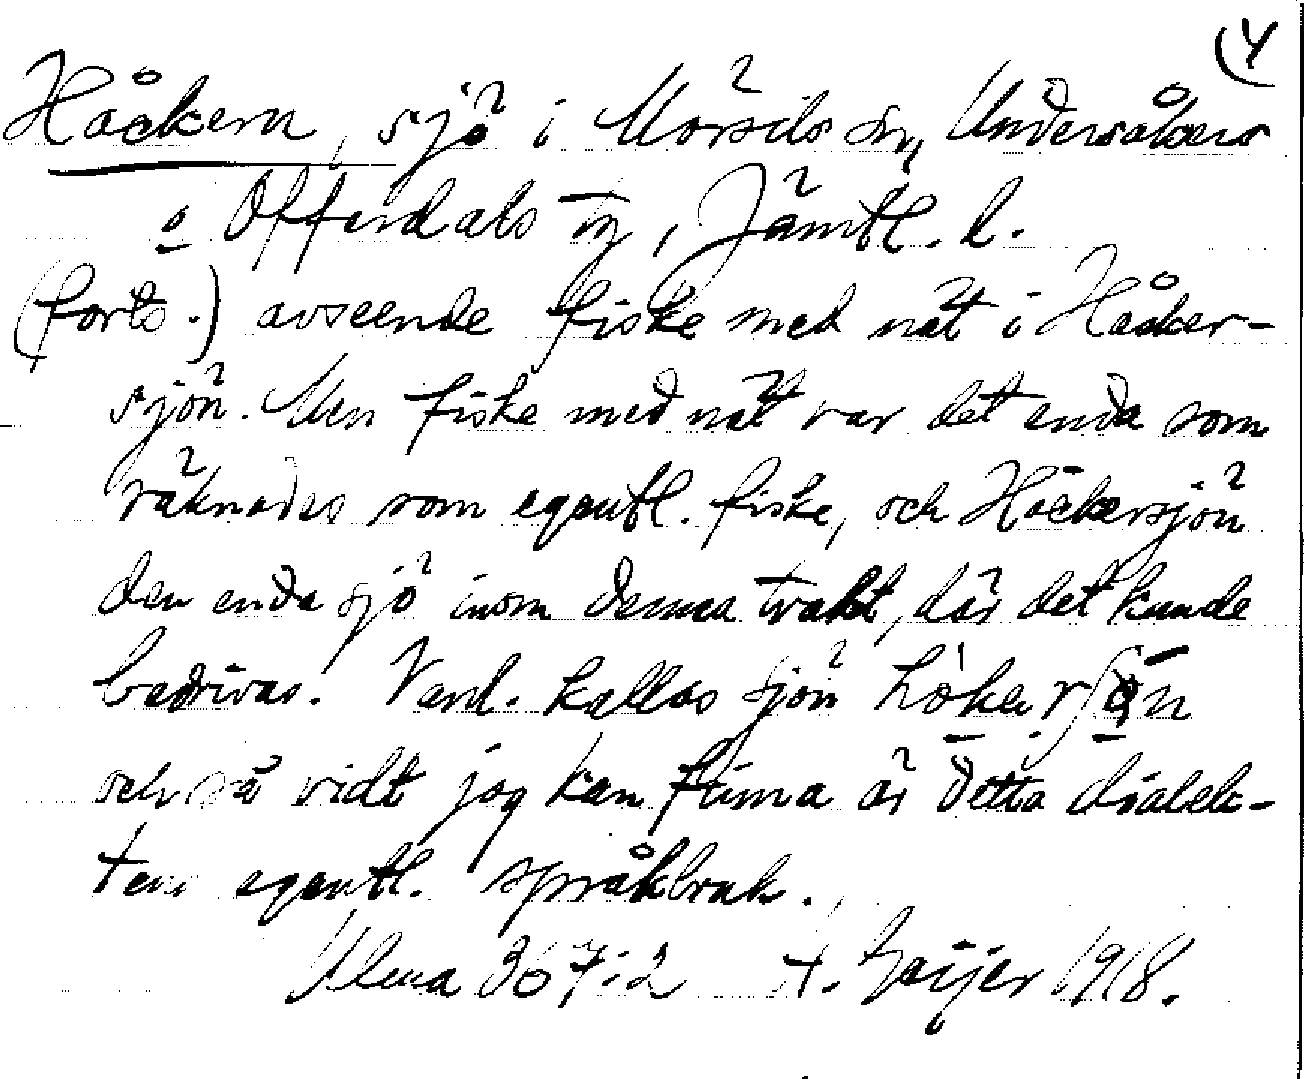 (4
Håckern, sjö i Mörsils sn, Undersåkers
o Offerdals tg, Jämtl. l.
(forts.) avseende fiske med nät i Håcker-
sjön. Men fiske med nät var det enda som
räknades som egentl. fiske, och Håckersjön
den enda sjö inom denna trakt, där det kunde
bedrivas. Vard. kallas sjön
och så vidt jag kan finna är detta dialek-
tens egentl. språkbruk.
Ulma 367:2 H. Geijer 1918.